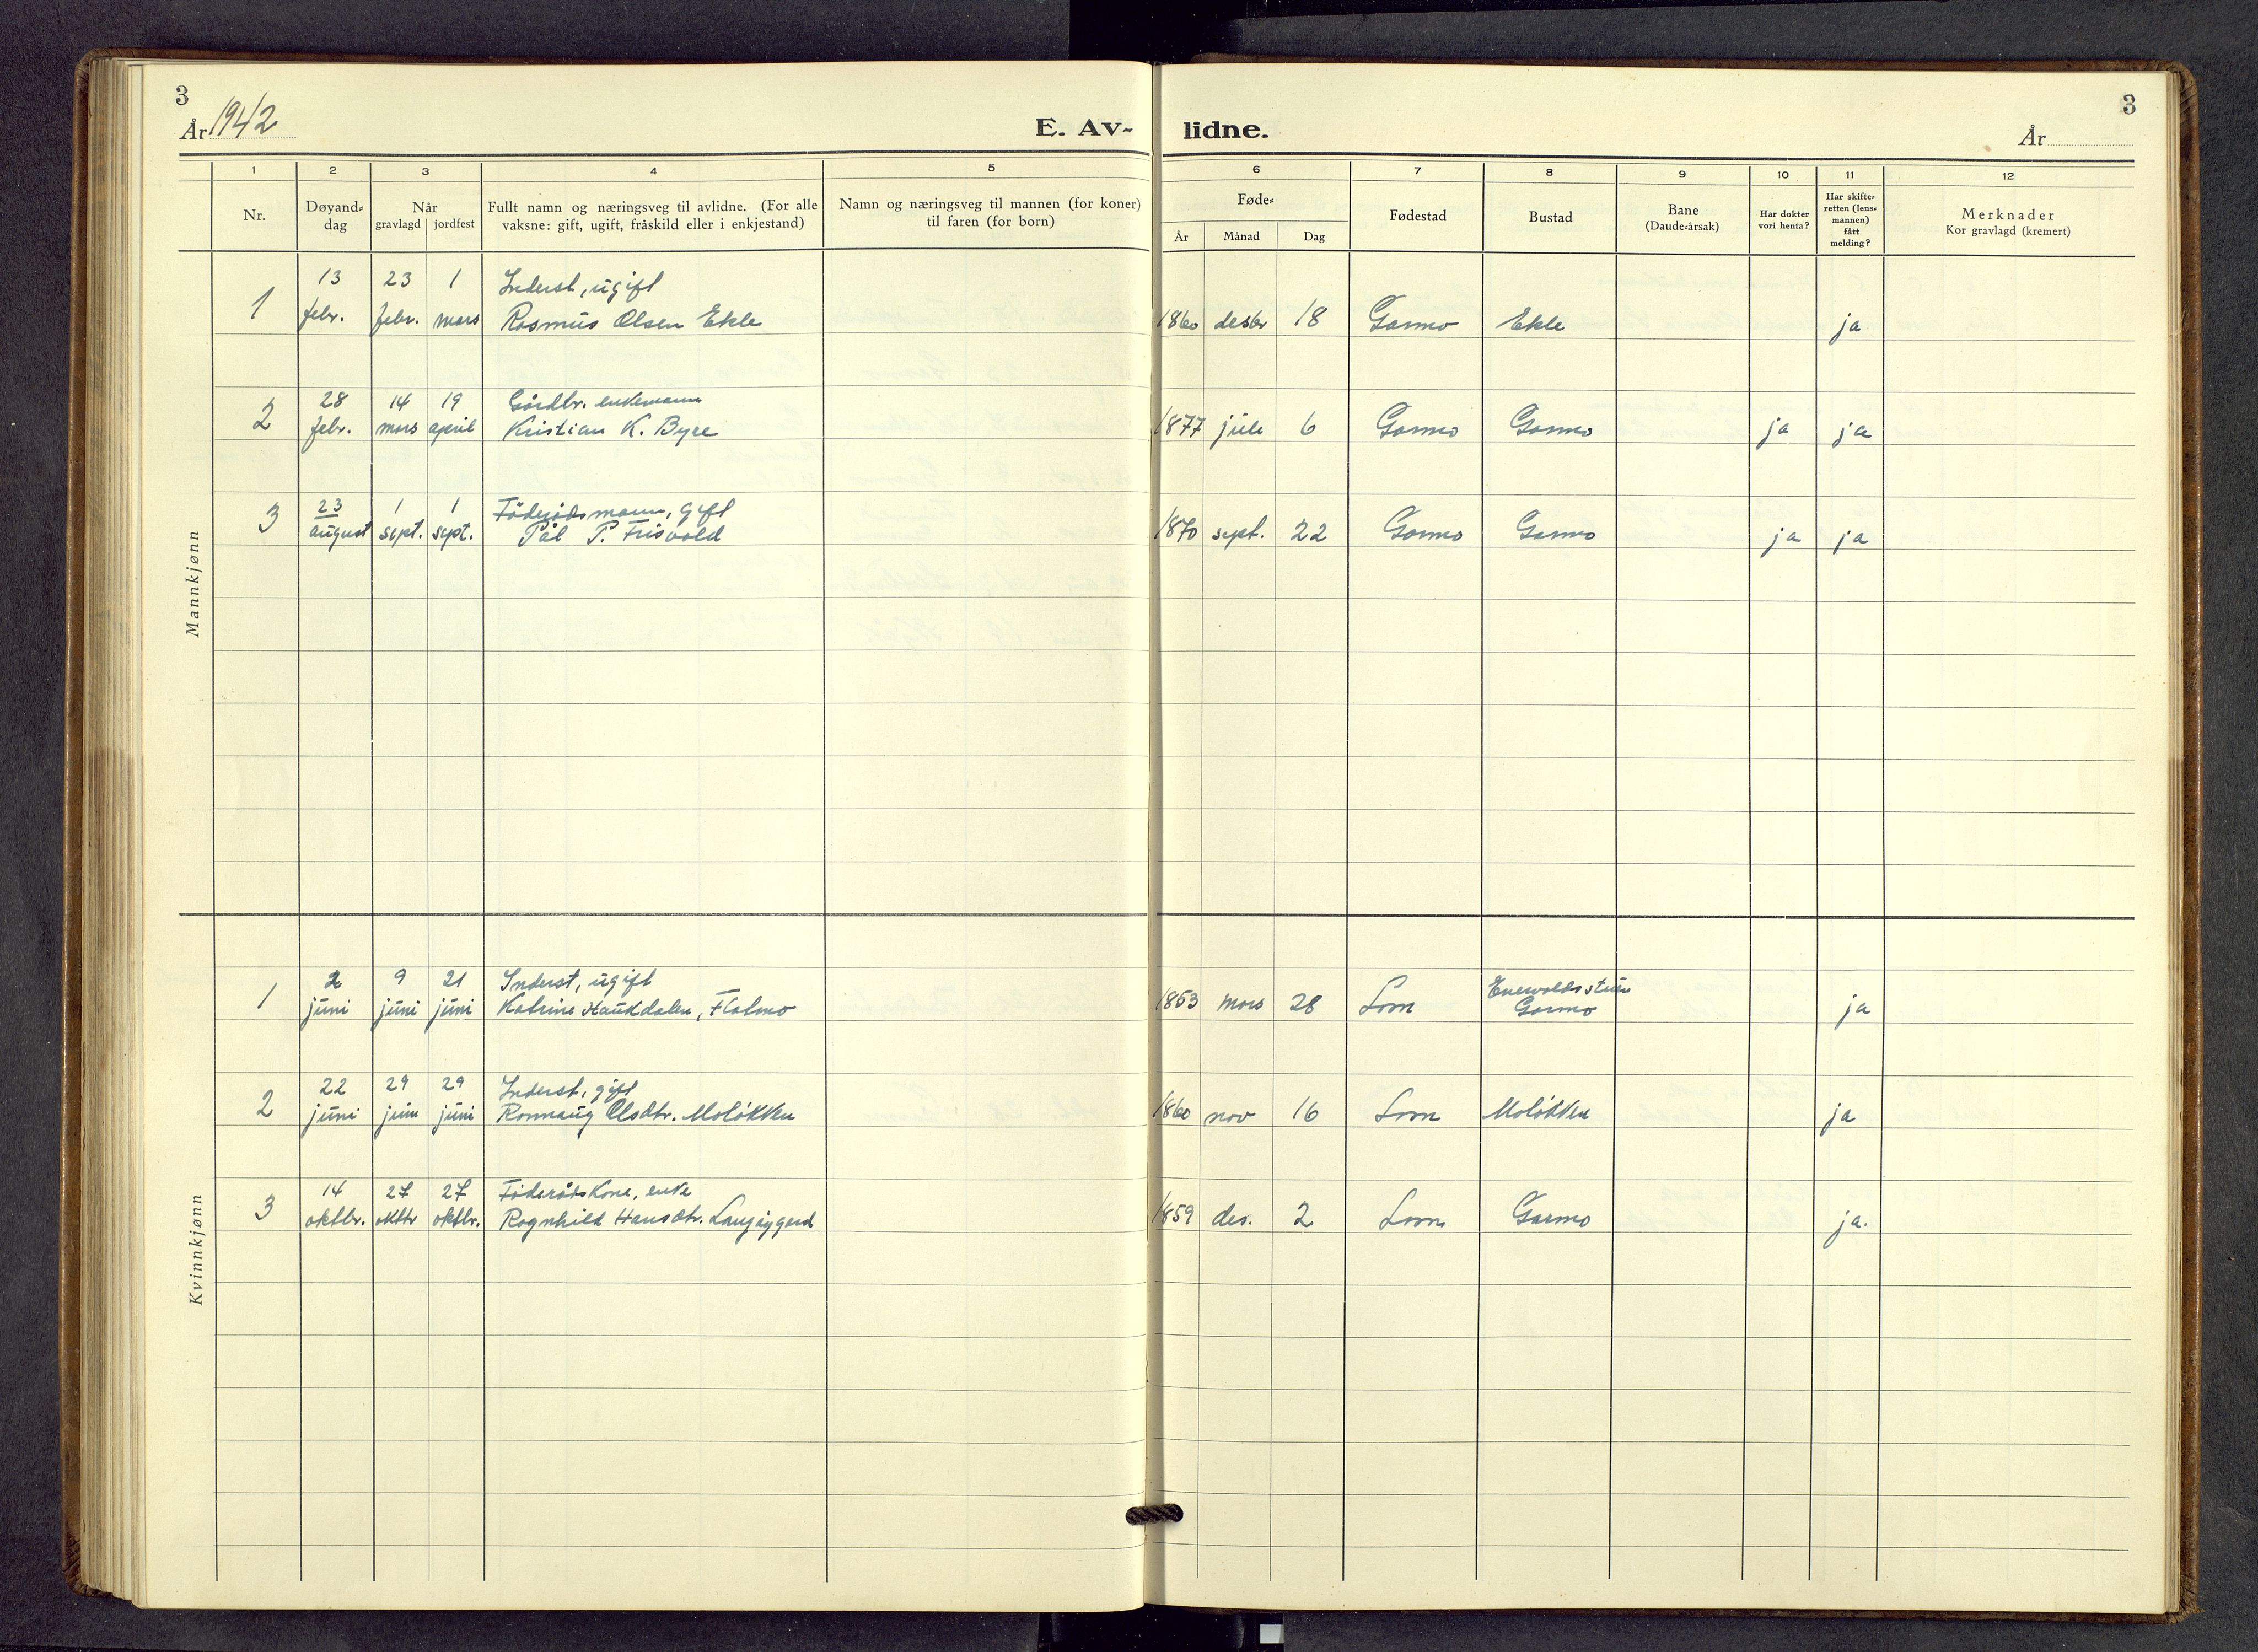 3
År 1942
E. Av-
lidne.
3
År
1 2 3 4 5 6 7 8 9 10 11 12
Nr.
Døyand-
dag
Når
gravlagd jordfest
Fullt namn og næringsveg til avlidne. (For alle
vaksne: gift, ugift, fråskild eller i enkjestand)
Namn og næringsveg til mannen (for koner)
til faren (for born)
Føde-
År Månad Dag
Fødestad
Bustad
Bane
(Daude-årsak)
Har dokter
vori henta?
Har skifte-
retten (lens-
mannen)
fått
melding?
Merknader
Kor gravlagd (kremert)
Mannkjønn
13 23 1 Inderst, ugift
1 febr. febr. mars Rasmus Olsen Ekle 1860 desbr 18 Garmo Ekle ja
28 14 19 Gårdbr. enkemann
2 febr. mars april Kristian K. Byre 1877 juli 6 Garmo Garmo ja ja
23 1 1 Föderådsmann, gift
3 august sept. sept. Pål P. Frisvold 1870 sept. 22 Garmo Garmo ja ja
Kvinnkjønn
2 9 21 Inderst, ugift
1 juni juni juni Katrine Haukdalen, Flatmo 1853 mars 28 Lom Garmo ja
22 29 29 Inderst, gift
2 juni juni juni Ronnaug Olsdtr. Moløkken 1860 nov 16 Lom Moløkken ja
14 27 27 Föderådskone, enke
3 oktbr. oktbr oktbr. Ragnhild Hansdtr. 1859 des. 2 Lom Garmo ja.